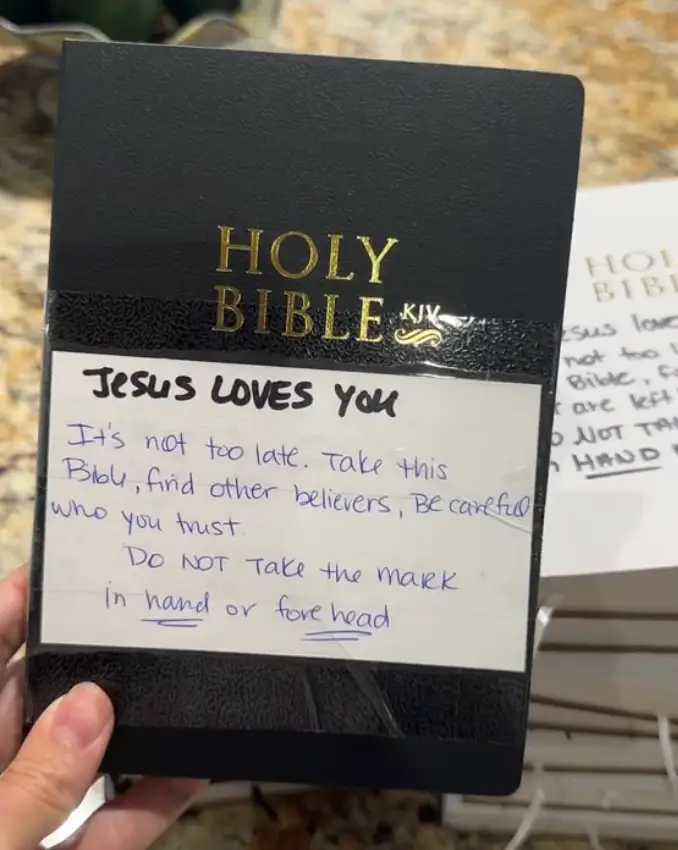 HOLY
BIBLE KJV
JESUS LOVES YOU
It's not too late. Take this
Bible, find other believers, Be careful
who you trust.
DO NOT Take the mark
in hand or forehead
HO
BIB
esus love
not too l
Bible, f
are left
O NOT TA
HAND